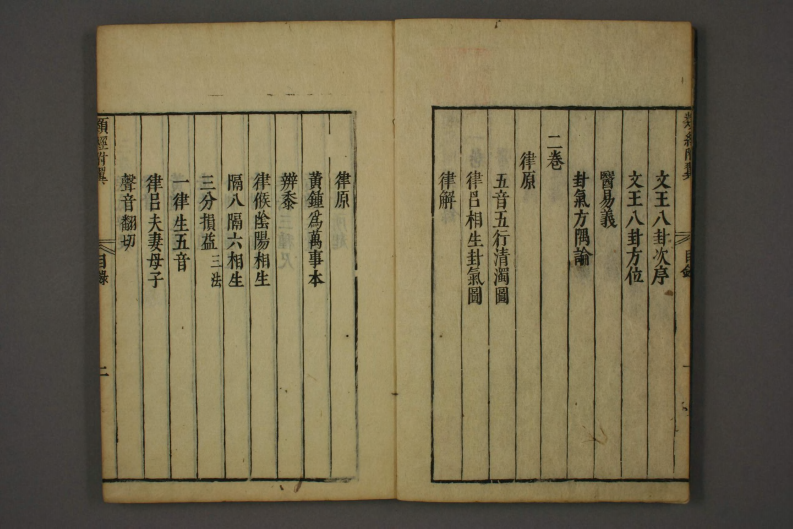 文王八卦次序
文王八卦方位
醫易義
卦氣方隅論
二卷
律原
五音五行清濁圖
律呂相生卦氣圖
律解
律原
黃鍾為萬事本
辨黍
律候陰陽相生
隔八隔六相生
三分損益 三法
一律生五音
律呂夫妻母子
聲音翻切
類經附翼
目錄
二